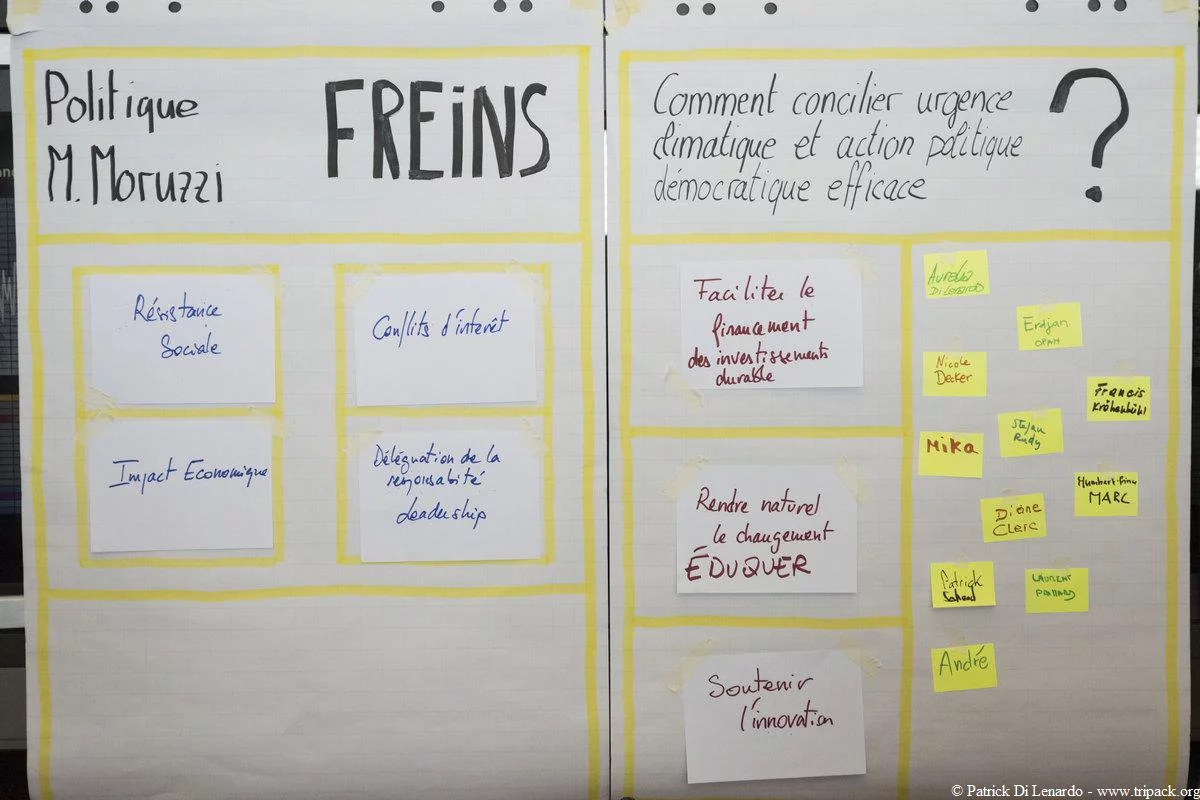 Politique
M. Moruzzi
FREiNS
Résistance
Sociale
Conflits d'intérêt
Impact Economique
Délégnation de la
responsabité
Leadership
Comment concilier urgence
climatique et action politique
démocratique efficace
?
Faciliter le
financement
des investissements
durable
Rendre naturel
le changement
ÉDUQUER
Soutenir
l'innovation
Aurelia
Di Lenardo
Erdjan
OPAN
Nicole
Decker
Francis
Krähenbühl
Stefan
Rudy
Mika
MARC
Diane
Clerc
Patrick
LAURENT
André
© Patrick Di Lenardo - www.tripack.org